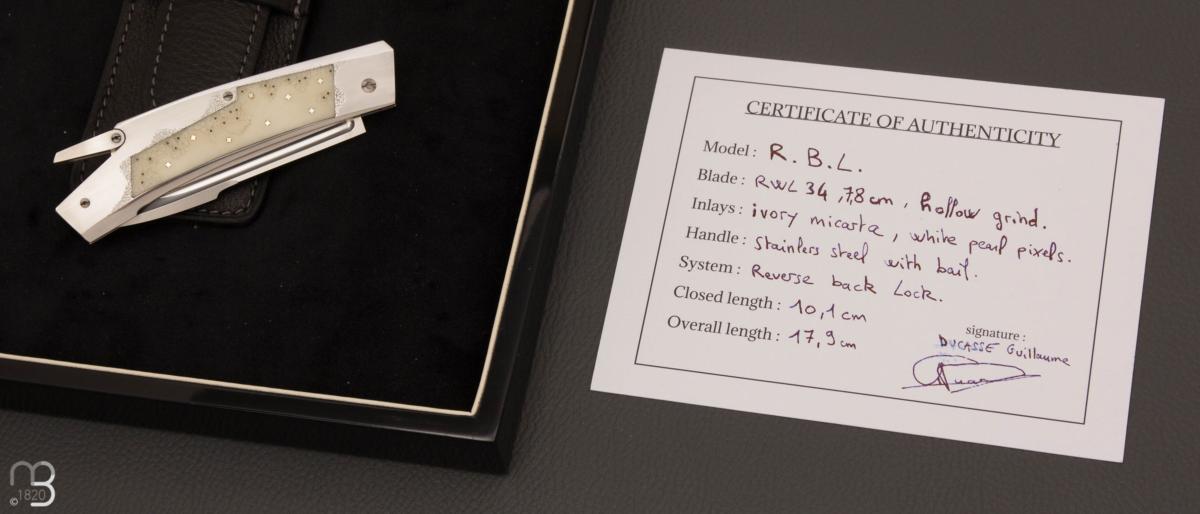 CERTIFICATE OF AUTHENTICITY
Model : R. B. L.
Blade : RWL 34 , 7,8 cm , hollow grind.
Inlays : ivory micarta , white pearl pixels.
Handle : stainless steel with bail.
System : Reverse back Lock.
Closed length : 10,1 cm
Overall length : 17,9 cm
signature :
DUCASSE Guillaume
© 1820